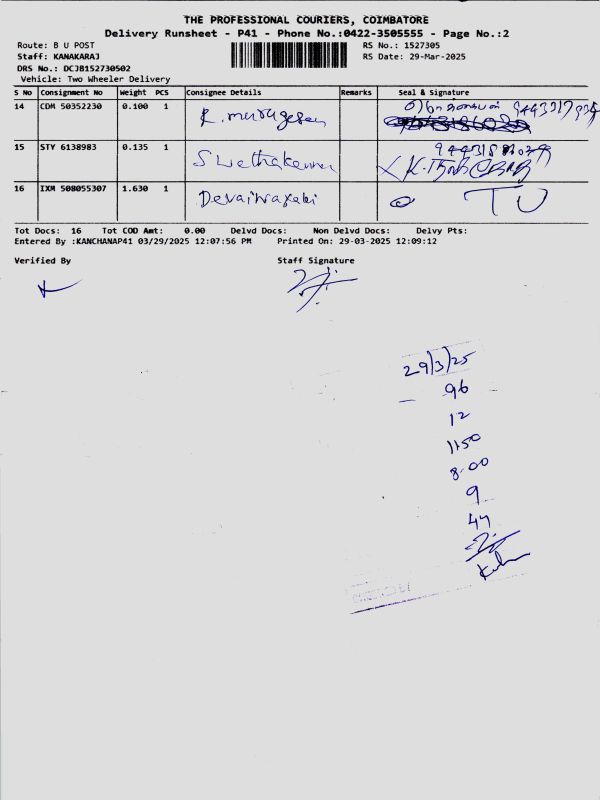 THE PROFESSIONAL COURIERS, COIMBATORE
Delivery Runsheet - P41 - Phone No.:0422-3505555 - Page No.:2
Route: B U POST
RS No.: 1527305
Staff: KANAKARAJ
RS Date: 29-Mar-2025
DRS No.: DCJB152730502
Vehicle: Two Wheeler Delivery
S No Consignment No Weight PCS Consignee Details Remarks Seal & Signature
14 CDM 50352230 0.100 1 R. murugesan
15 STY 6138983 0.135 1 Swethakumar
16 IXM 508055307 1.630 1
Tot Docs: 16 Tot COD Amt: 0.00 Delvd Docs: Non Delvd Docs: Delvy Pts:
Entered By :KANCHANAP41 03/29/2025 12:07:56 PM Printed On: 29-03-2025 12:09:12
Verified By Staff Signature
29/3/25
96
12
1150
8.00
9
47